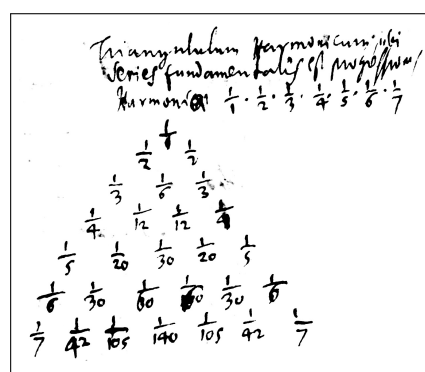 Triangulum Harmonicum: ubi
Series fundamentalis est progressionis
Harmonicæ 1/1 · 1/2 · 1/3 · 1/4 · 1/5 · 1/6 · 1/7
1/1
1/2 1/2
1/3 1/6 1/3
1/4 1/12 1/12 1/4
1/5 1/20 1/30 1/20 1/5
1/6 1/30 1/60 1/60 1/30 1/6
1/7 1/42 1/105 1/140 1/105 1/42 1/7